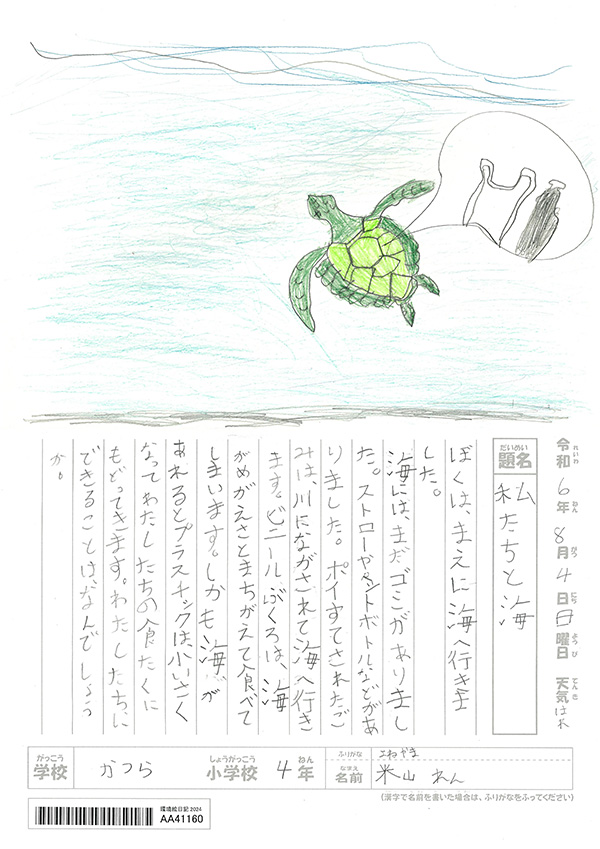 令和6年8月4日日曜日 天気はれ
題名 私たちと海
ぼくは、まえに海へ行きま
した。
海には、まだゴミがありまし
た。ストローやペットボトルなどがあ
りました。ポイすてされたご
みは、川にながされて海へ行き
ます。ビニールぶくろは、海
がめがえさとまちがえて食べて
しまいます。しかも海が
あれるとプラスチックは、小さく
なってわたしたちの食たくに
もどってきます。わたしたちに
できることは、なんでしょう
か。
学校 かつら 小学校 4年 名前 米山 れん
がっこう しょうがっこう ねん ふりがな よねやま なまえ
(漢字で名前を書いた場合は、ふりがなをふってください)
環境絵日記2024
AA41160